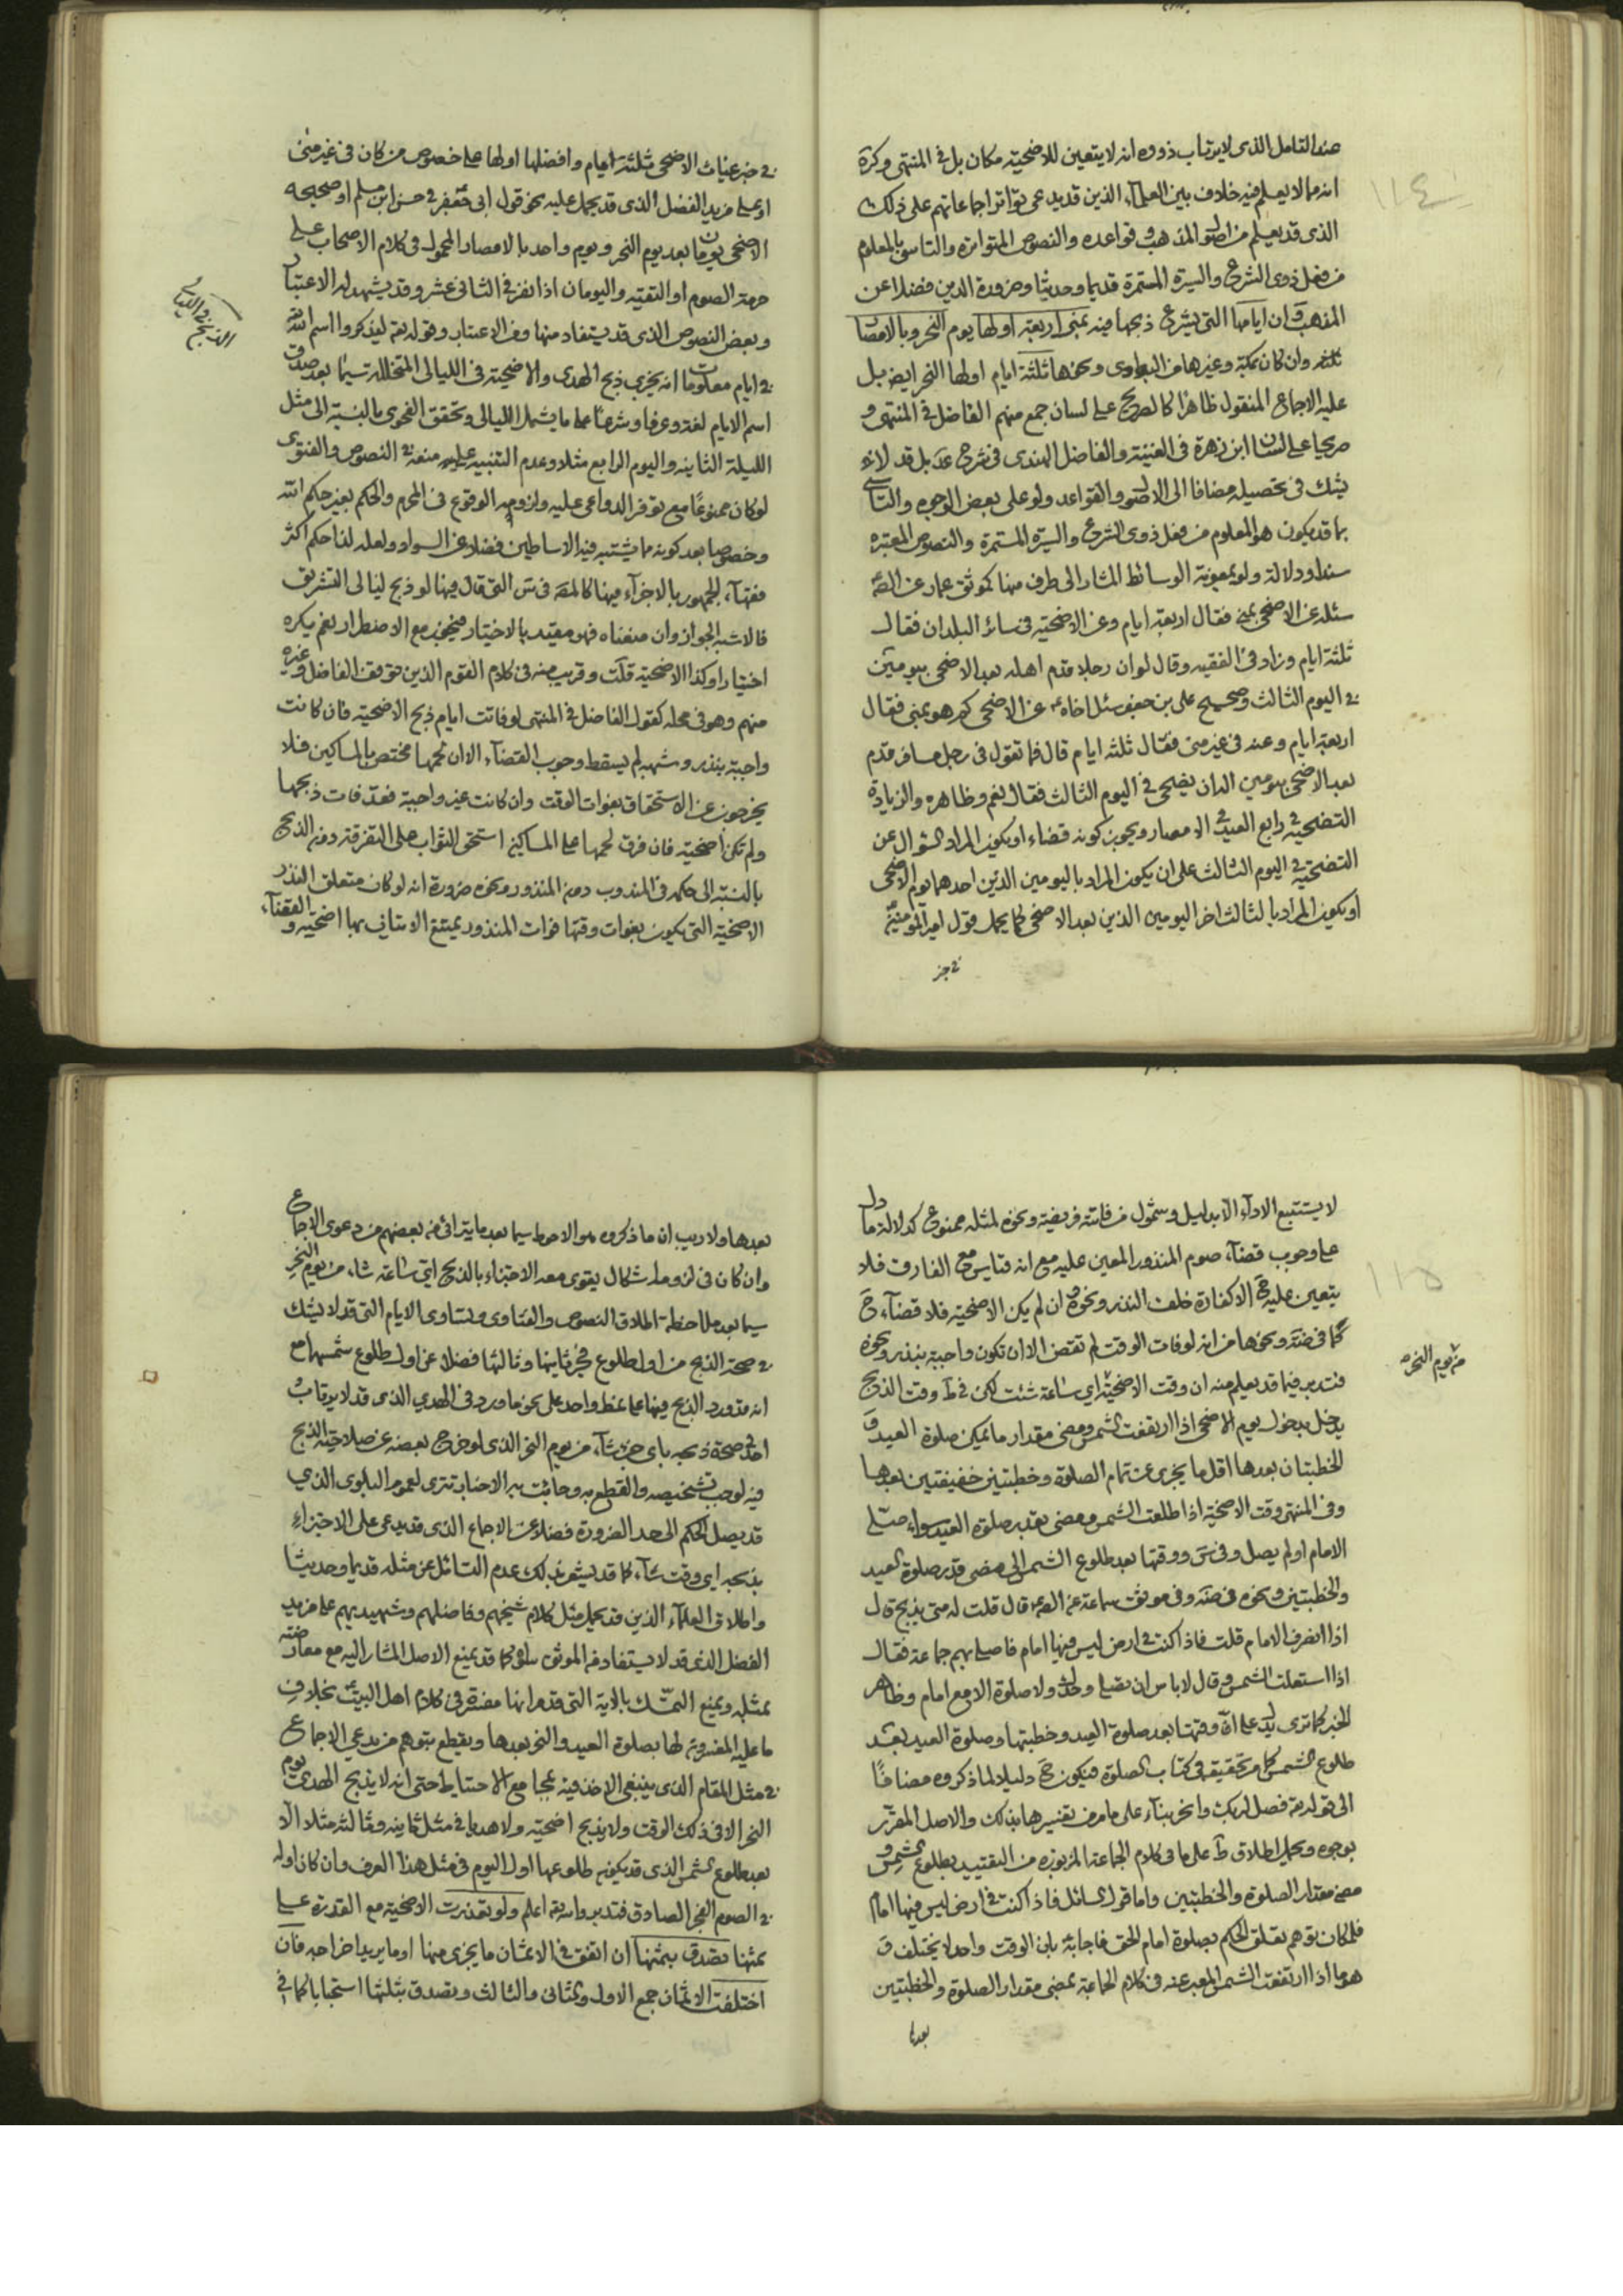 عند التامل الذى لا يرتاب ذووه انه لا يتعين للاضحية مكان بل فى المنتهى وكرة
انه مما لا يعلم فيه خلاف بين العلماء الذين قد يدعى تواتر اجماعاتهم على ذلك
الذى قد يعلم من اصول المذهب وقواعده والنصوص المتواترة والتاسى بالمعلوم
من فعل ذوى الشرع والسيرة المستمرة قديما وحديثا وضرورة الدين فضلا عن
المذهب وان ايامها التى يشرع ذبحها فيه بمنى اربعة اولها يوم النحر وبالامصار
ثلثه وان كان بمكة وغيرها من البوادى ونحوها ثلثة ايام اولها النحر ايضا بل
عليه الاجماع المنقول ظاهرا كالصريح على لسان جمع منهم الفاضل فى المنتهى و
صريحا على لسان ابن زهرة فى الغنية والفاضل الهندى فى شرح عد بل قد لا
يشك فى تحصيله مضافا الى الاصول والقواعد ولو على بعض الوجوه والتاسى
بما قد يكون هو المعلوم من فعل ذوى الشرع والسيرة المستمرة والنصوص المعتبره
سندا ودلالة ولو بمعونة الوسائط المشار الى طرف منها كموثق عمار عن الصم
سئله عن الاضحى بمنى فقال اربعة ايام وعن الاضحية فى سائر البلدان فقال
ثلثة ايام وزاد فى الفقيه وقال لو ان رجلا قدم اهله بعد الاضحى بيومين
فى اليوم الثالث وصحيح على بن جعفر سئل اخاه عن الاضحى كم هو بمنى فقال
اربعة ايام وعنه فى غير منى فقال ثلثه ايام قال فما تقول فى رجل مسافر قدم
بعد الاضحى بيومين اله ان يضحى فى اليوم الثالث فقال نعم وظاهره والزيادة
التضحية رابع العيد فى الامصار ويجوز كونه قضاء او يكون المراد السؤال عن
التضحية فى اليوم الثالث على ان يكون المراد باليومين الذين احدهما يوم الاضحى
او يكون المراد بالثالث اخر اليومين الذين بعد الاضحى كما يحمل قول امير المؤمنين
فى خبر
١١٤
فى خبر غياث الاضحى ثلثة ايام وافضلها اولها على خصوص من كان فى غير منى
او على مزيد الفضل الذى قد يحمل عليه نحو قول ابى جعفر فى حسن ابن مسلم او صحيحه
الاضحى يومان بعد يوم النحر ويوم واحد بالامصار المحمول فى كلام الاصحاب على
حرمة الصوم او التقية واليومان اذا نفر فى الثانى عشر وقد يشهد له الاعتبار
وبعض النصوص الذى قد يستفاد منها ومن الاعتبار وقوله تع ليذكروا اسم الله
فى ايام معلومات انه يجزى ذبح الهدى والاضحية فى الليالى المتخللة سيما بعد صدق
اسم الايام لغة وعرفا وشرعا على ما يشمل الليالى وتحقق الفحوى بالنسبة الى مثل
الليلة الثانيه واليوم الرابع مثلا وعدم التنبيه على منعه فى النصوص والفتوى
لو كان ممنوعا مع توفر الدواعى عليه ولزومه الوقوع فى المحرم والحكم بغير حكم الله
وخصوصا بعد كونه مما يشتبه فيه الاساطين فضلا عن السواد ولعله لذا حكم اكثر
فقهاء الجمهور بالاجزاء فيها كالمصه فى س التى قال فيها لو ذبح ليالى التشريق
فالاشبه الجواز وان منعناه فهو مقيد بالاختيار فيجوز مع الاضطرار نعم يكره
اختيارا وكذا الاضحية قلت وقريب منه فى كلام القوم الذين توقف الفاضل وغيره
منهم وهو فى محله كقول الفاضل فى المنتهى لو فاتت ايام ذبح الاضحية فان كانت
واجبة بنذر وشبهه لم يسقط وجوب القضاء الا ان لحمها مختص بالمساكين فلا
يخرجون عن الاستحقاق بفوات الوقت وان كانت غير واجبة فقد فات ذبحها
ولم تكن اضحية فان فرق لحمها على المساكين استحق الثواب على التفرقة دون الذبح
بالنسبة الى حكمه فى المندوب دون المنذور ونحوه ضرورة انه لو كان متعلق النذر
الاضحية التى يكون بفوات وقتها فوات المنذور يمتنع الاتيان بها اضحية والقضاء
لا يستتبع الاداء الا بدليل وشمول من فاتته فريضة ونحوه لمثله ممنوع كدلالة ما دل
على وجوب قضاء صوم المنذور المعين عليه مع انه قياس مع الفارق فلا
يتعين عليه ح الا كفارة خلف النذر ونحوه ان لم يكن الاضحية فلا قضاء ح
كما فى ضه ونحوها من انه لو فات الوقت لم تقض الا ان تكون واجبة بنذر ونحوه
فتدبر فيما قد يعلم منه ان وقت الاضحية اى ساعة شئت لكن فى ط وقت الذبح
يدخل بدخول يوم الاضحى اذا ارتفعت الشمس ومضى مقدار ما يمكن صلوة العيد و
الخطبتان بعدها اقل ما يجزى عن تمام الصلوة وخطبتين خفيفتين بعدها
وفى المنتهى وقت الاضحية اذا طلعت الشمس ومضى بقدر صلوة العيد سواء صلى
الامام او لم يصل وفى س ووقتها بعد طلوع الشمس الى مضى قدر صلوة العيد
والخطبتين ونحوه فى ضه وفى موثق سماعة عن الصم قال قلت له متى يذبح قال
اذا انصرف الامام قلت فاذا كنت فى ارض ليس فيها امام فاصلى بهم جماعة فقال
اذا استعلت الشمس وقال لا باس ان تصلى وحدك ولا صلوة الا مع امام وظاهر
الخبر كما ترى يدل على ان وقتها بعد صلوة العيد وخطبتها وصلوة العيد بعد
طلوع الشمس كما مر تحقيقه فى كتاب الصلوة فيكون ح دليلا لما ذكروه مضافا
الى قوله تع فصل لربك وانحر بناء على ما مر من تفسيرها بذلك والاصل المقرر
بوجوه ويحمل اطلاق ط على ما فى كلام الجماعة المزبورة من التقييد بطلوع الشمس و
مضى مقدار الصلوة والخطبتين واما قول السائل فاذا كنت فى ارض ليس فيها امام
فلمكان توهم تعلق الحكم بصلوة امام الحق فاجابه بان الوقت واحد لا يختلف و
هو ما اذا ارتفعت الشمس المعبر عنه فى كلام الجماعة بمضى مقدار الصلوة والخطبتين
بعدها
١١٥
من يوم النحر
بعدها ولا ريب ان ما ذكروه هو الاحوط سيما بعد ما يترائى من بعضهم من دعوى الاجماع
وان كان فى لزومه اشكال يقوى معه الاجتزاء بالذبح اى ساعة شاء من يوم النحر
سيما بعد ملاحظة اطلاق النصوص والفتاوى وتساوى الايام التى قد لا يشك
فى صحة الذبح من اول طلوع فجر ثانيها وثالثها فضلا عن اول طلوع شمسها مع
انه قد ورد الذبح فيها على نمط واحد على نحو ما ورد فى الهدي الذى قد لا يرتاب
احد فى صحة ذبحه باى جزء شاء من يوم النحر الذى لو خرج بعضه عن صلاحية الذبح
فيه لوجب تشخيصه والقطع به وجائت به الاخبار تترى لعموم البلوى الذي
قد يصل الحكم الى حد الضرورة فضلا عن الاجماع الذى قد يدعى على الاجتزاء
بذبحه اى وقت شاء كما قد يشعر بذلك عدم التسائل عن مثله قديما وحديثا
واطلاق العلماء الذين قد يحمل مثل كلام شيخهم وفاضلهم وشهيديهم على مزيد
الفضل الذى قد لا يستفاد من الموثق سواه كما قد يمنع الاصل المشار اليه مع معارضته
بمثله ويمنع التمسك بالاية التى قد مر انها مفسرة فى كلام اهل البيت بخلاف
ما عليه المفسرون لها بصلوة العيد والنحر بعدها ويقطع بتوهم من يدعى الاجماع
فى مثل المقام الذى ينبغى الاخذ فيه بمجامع الاحتياط حتى انه لا يذبح الهدى يوم
النحر الا فى ذلك الوقت ولا يذبح اضحية ولا هديا فى مثل ثانيه وثالثه مثلا الا
بعد طلوع الشمس الذى قد يكون طلوعها اول اليوم فى مثل هذا العرف وان كان اوله
فى الصوم الفجر الصادق فتدبر والله تع اعلم ولو تعذرت الاضحية مع القدرة على
ثمنها تصدق بثمنها ان اتفق فى الاثمان ما يجزى منها او ما يريد اخراجه فان
اختلفت الاثمان جمع الاول والثانى والثالث وتصدق بثلثها استحبابا كما فى